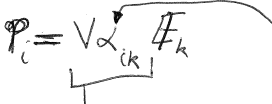 𝒫ᵢ = V α_{ik} E_k